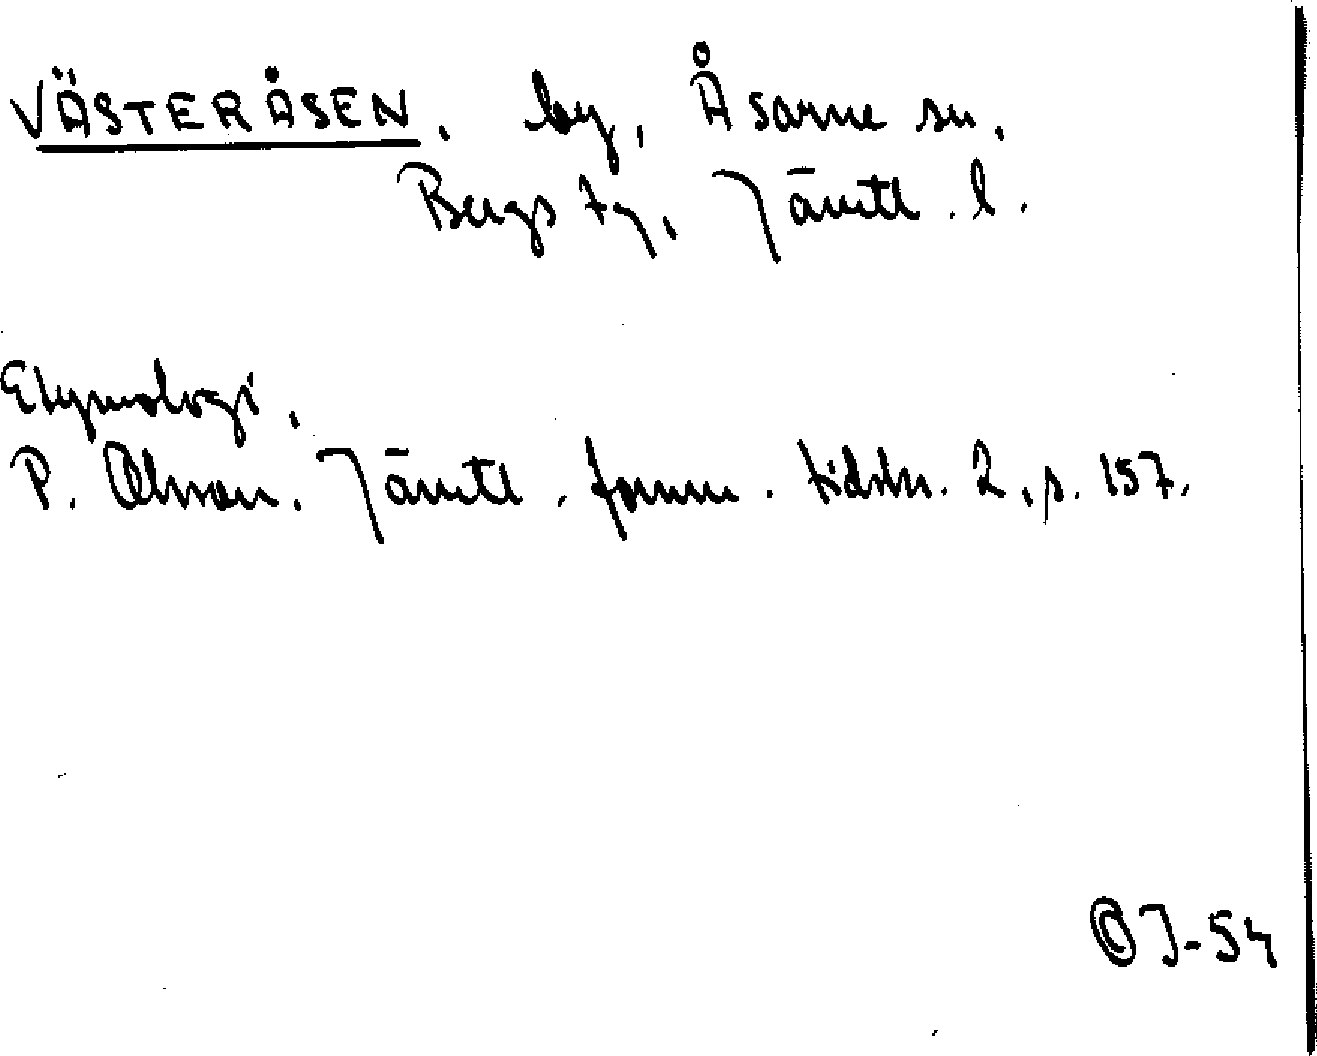 VÄSTERÅSEN. by, Åsarne sn.
Bergs tg, Jämtl. l.
Etymologi.
P. Olsson. Jämtl. fornm. tidskr. 2, s. 157.
©J-54